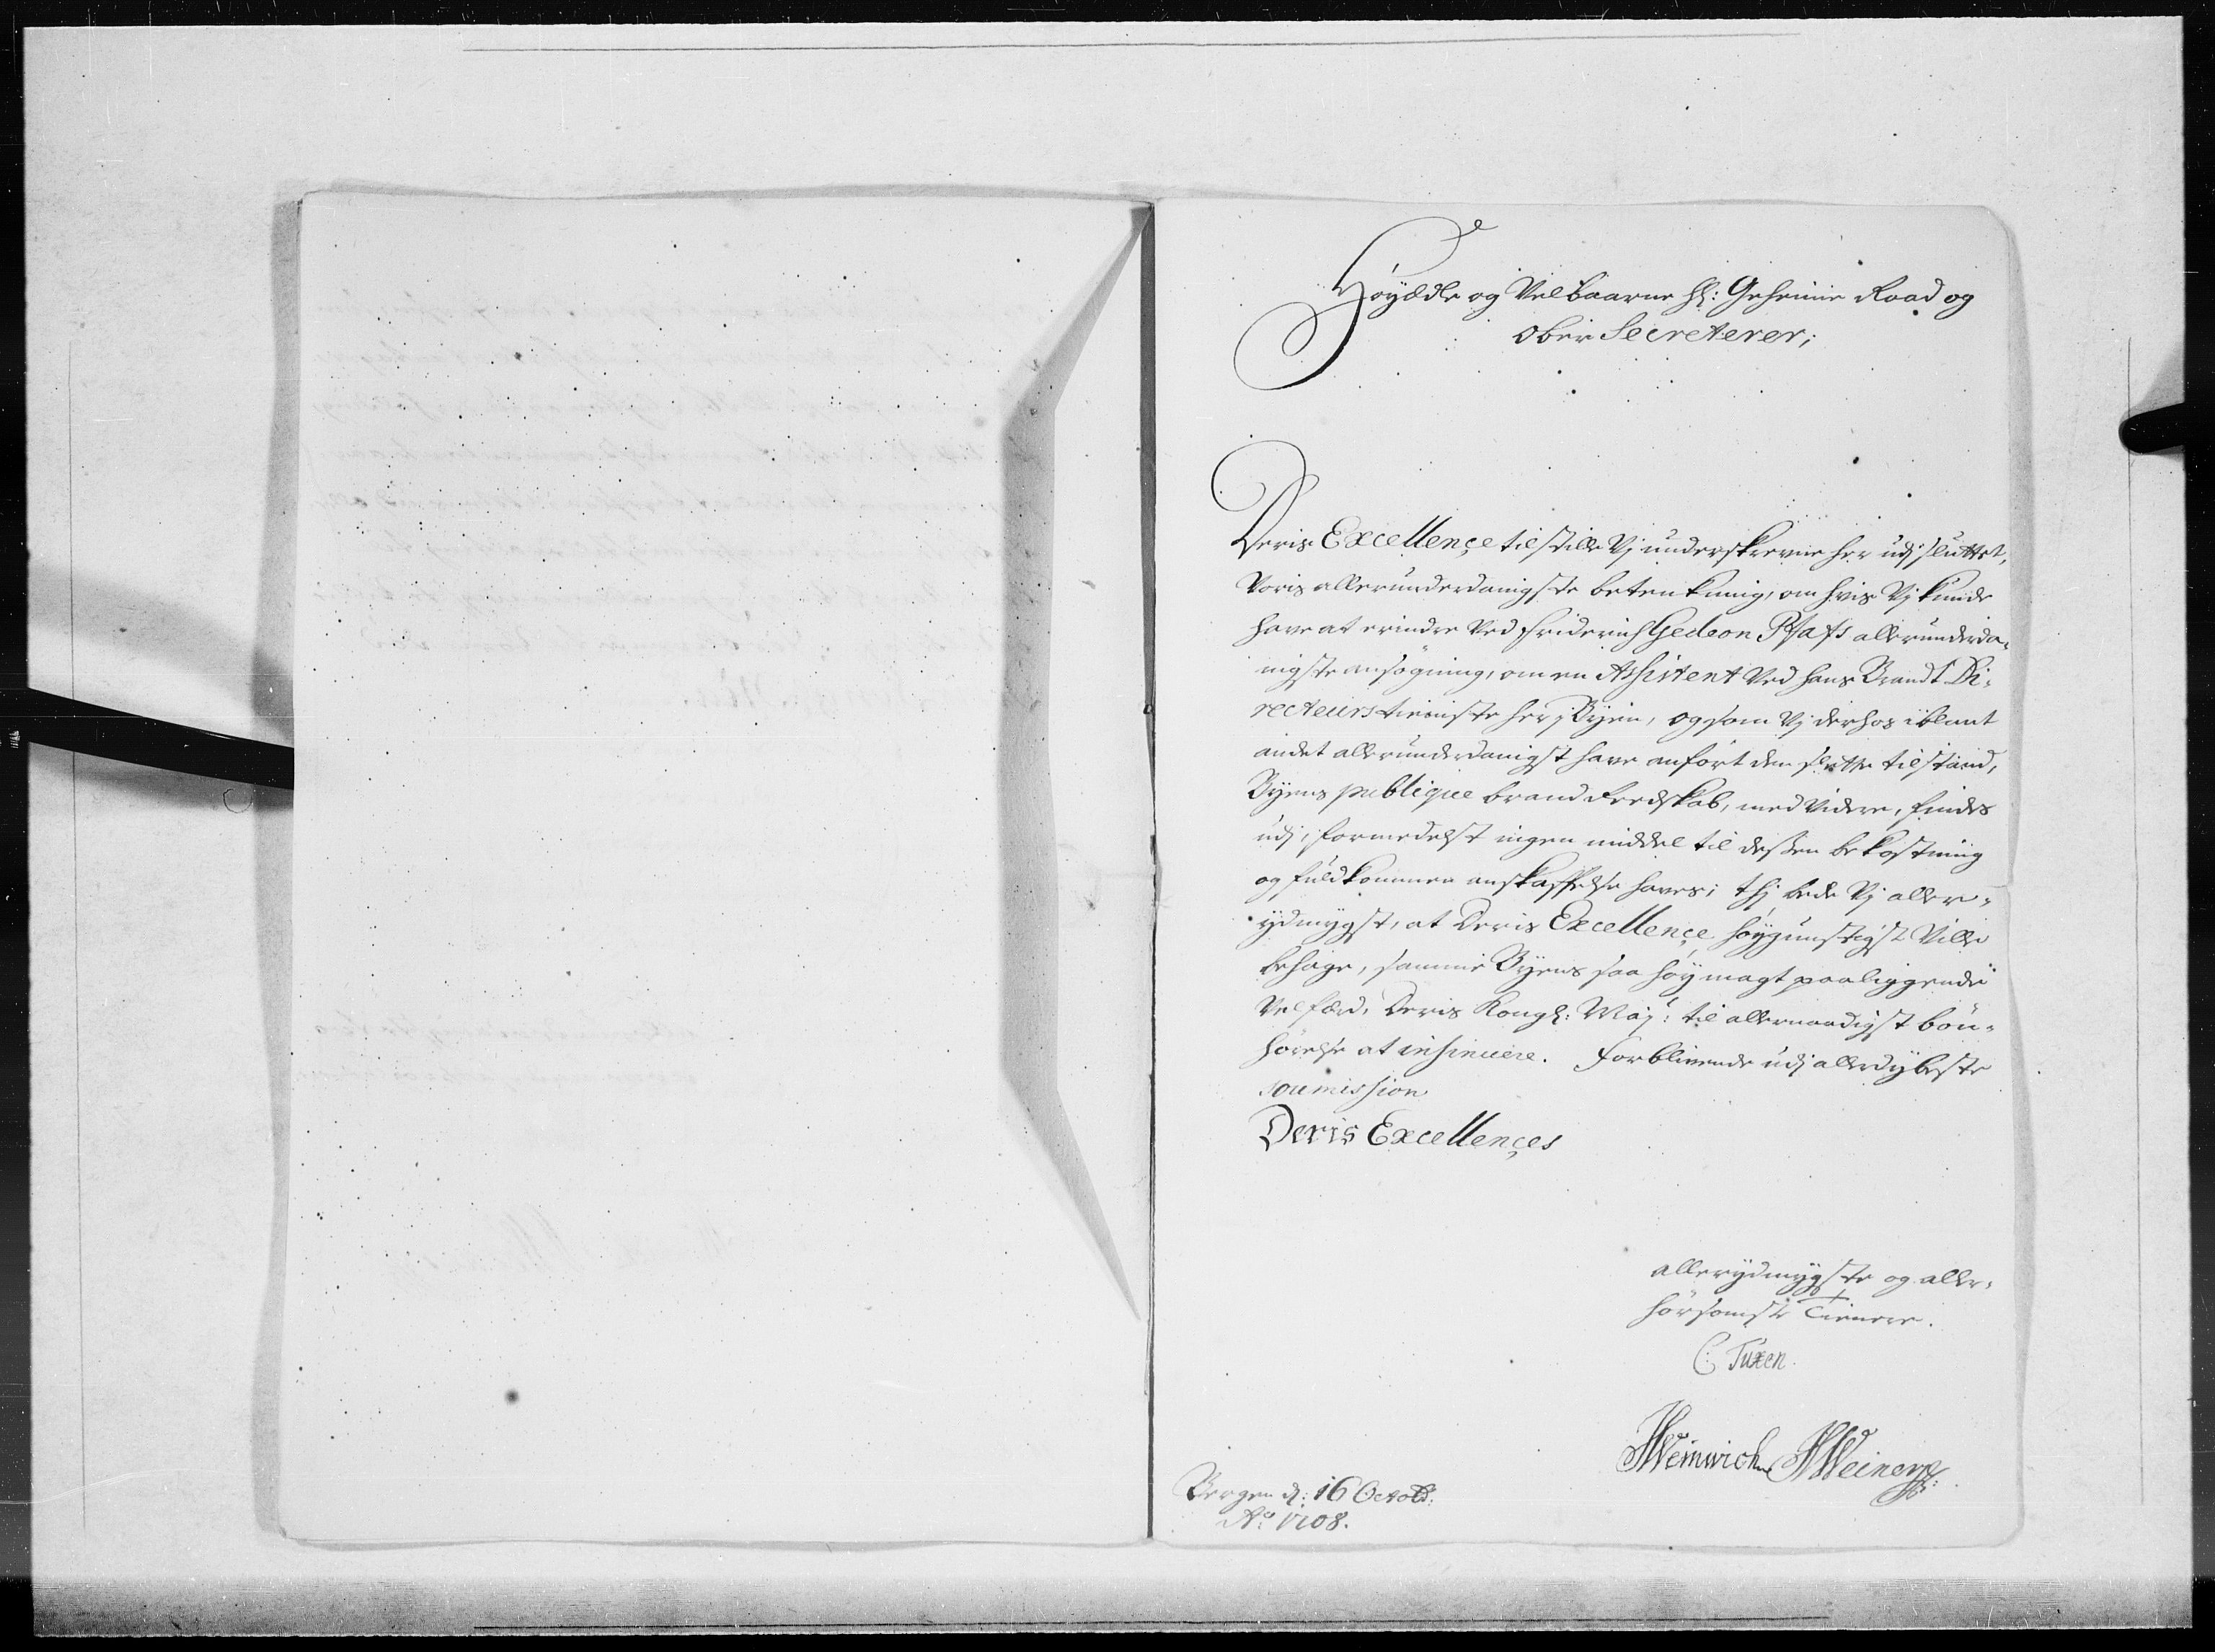 Höyædle og Velbaarne Hr: Geheime Raad og
Ober Secreterer;
Deris Excellençe tilstille Vj underskrevne her udj sluttet,
Voris allerunderdanigste betenkning, om hvis Vj kunde
have at erindre Ved Friderich Gedeon Pfafs allerunderda-
nigste ansøgning, om en Assistent Ved hans Brandt Di-
recteurs tieniste her j Byen, og som Vj derhos iblant
andet allerunderdanigst have anført den slette tilstand,
Byens publique brand Reedskab, med Videre, findes
udj, formedelst ingen middel til dessen bekostning
og fuldkommen anskaffelse haves; thj bede Vj aller-
ydmygst, at Deris Excellençe höygunstigst Ville
behage, samme Byens saa höy magt paaliggende
Velfærd, Deris Kongl: Maj: til allernaadigst bön-
hörelse at insinuere. Forblivende udj allerdybeste
soumission
Deris Excellençes
allerydmygste og aller-
hörsomste Tienere.
C: Tuxen.
HWeinwich HWeiner
Bergen d: 16 Octob:
Ao 1708.